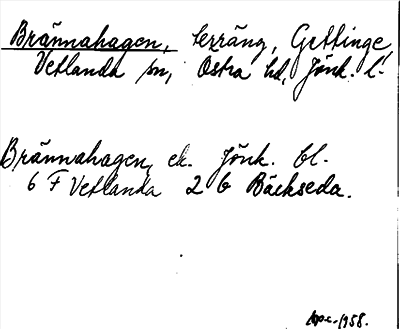 Brännahagen, terräng, Gettinge,
Vetlanda sn, Östra hd, Jönk. l.
Brännahagen, ek. Jönk. bl.
6 F Vetlanda 2 b Bäckseda.
1958.